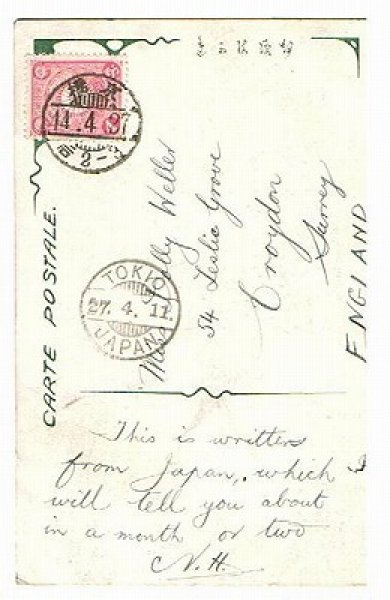 CARTE POSTALE.
14.4.27
2-3
TOKIO
27.4.11.
JAPAN
Miss Dolly Weller
54 Leslie Grove
Croydon
Surrey
ENGLAND
This is written
from Japan, which
will tell you about
in a month or two
N.H.